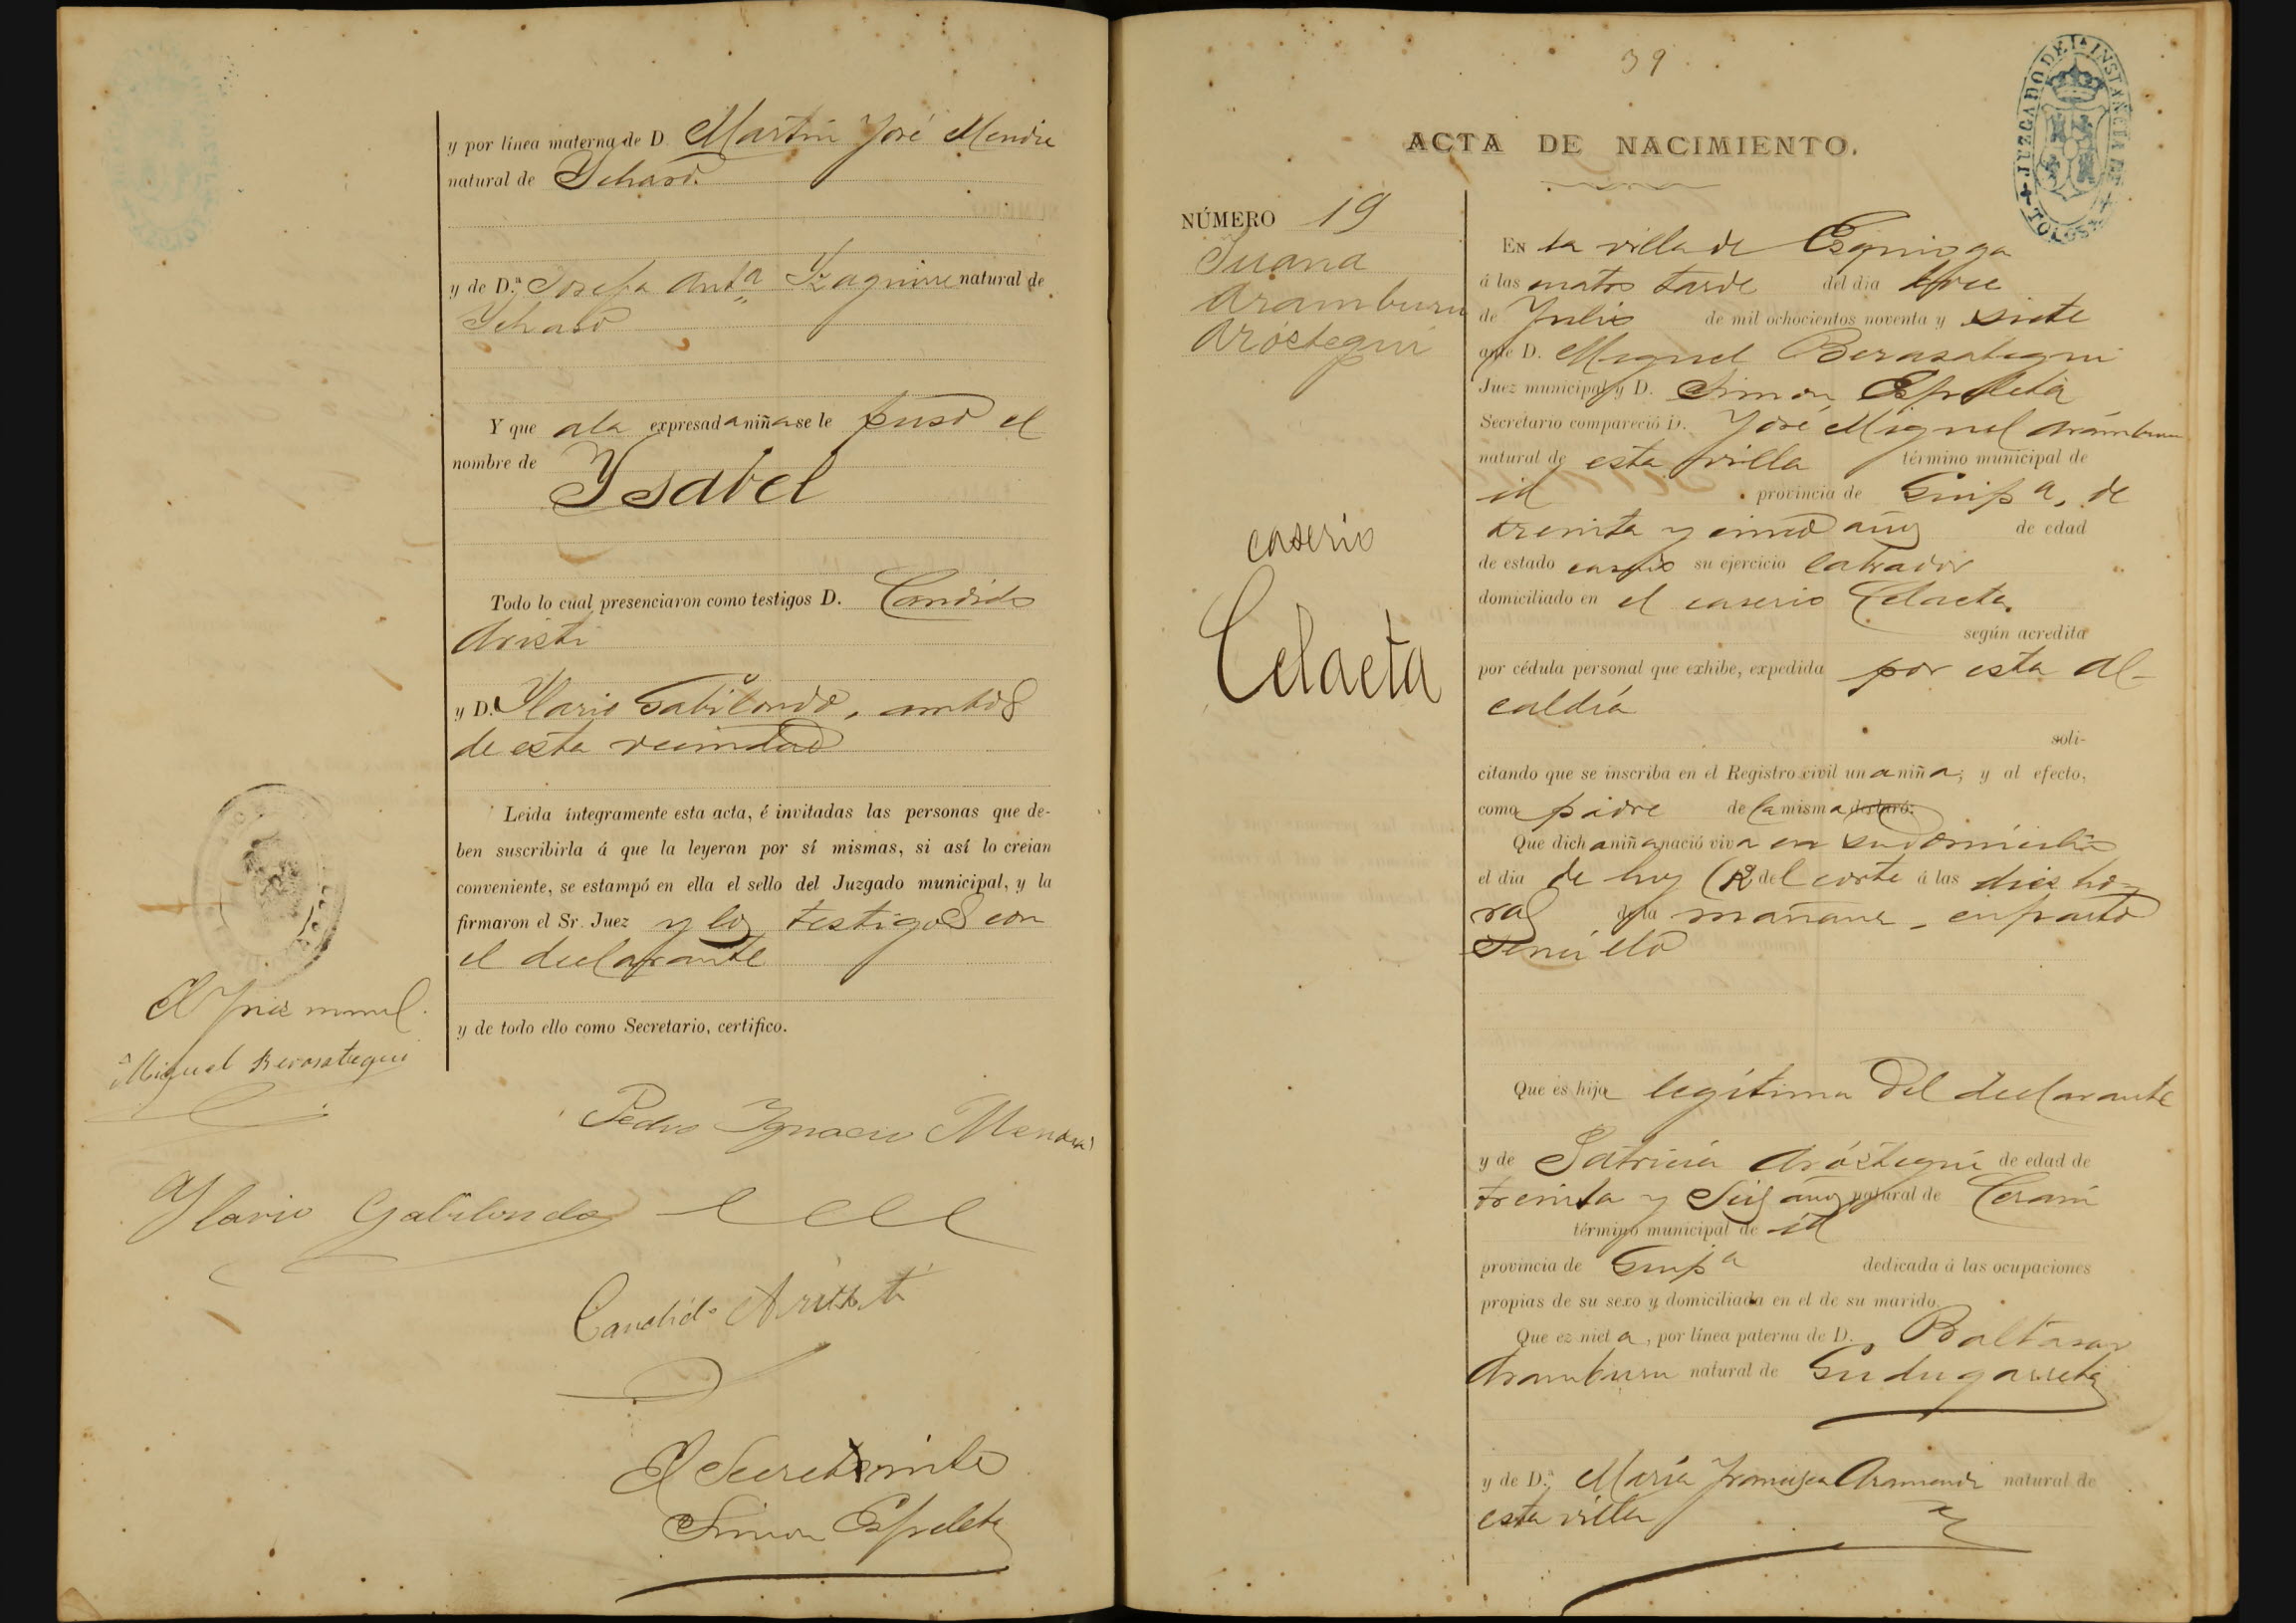 y por línea materna de D. Martin José Mendia
natural de Ychaso.
y de D.ª Josefa Antª Yzaguirre natural de
Ychaso
Y que a la expresada niña se le puso el
nombre de
Ysabel
Todo lo cual presenciaron como testigos D. Candido
Aristi
y D. Ylario Gabilondo, ambos
de esta vecindad
Leida íntegramente esta acta, é invitadas las personas que de-
ben suscribirla á que la leyeran por sí mismas, si así lo creian
conveniente, se estampó en ella el sello del Juzgado municipal, y la
firmaron el Sr. Juez y los testigos con
el declarante
y de todo ello como Secretario, certifico.
El Juez
Miguel Berasategui
Pedro Ygnacio
Ylario Gabilondo
Candido Aristi
El Secret
Simon Espeleta
39
JUZGADO DE 1ª INSTANCIA DE TOLOSA
ACTA DE NACIMIENTO.
NÚMERO 19
Juana
Aramburu
Aróstegui
caserio
Celaeta
EN la villa de Esquioga
á las cuatro tarde del dia doce
de Julio de mil ochocientos noventa y siete
ante D. Miguel Berasategui
Juez municipal y D. Simon Espeleta
Secretario compareció D. José Miguel Aramburu
natural de esta villa término municipal de
id provincia de Guipª, de
treinta y cinco años de edad
de estado casado su ejercicio labrador
domiciliado en el caserio Celaeta.
según acredita
por cédula personal que exhibe, expedida por esta Al-
caldía
soli-
citando que se inscriba en el Registro civil una niña; y al efecto,
como padre de la misma declaró:
Que dicha niña nació viva en su domicilio
el dia de hoy (12 del corte á las diez ho-
ras de la mañana, en parto
sencillo
Que es hija legítima del declarante
y de Patricia Aróstegui de edad de
treinta y seis años natural de Cerain
término municipal de id
provincia de Guipª dedicada á las ocupaciones
propias de su sexo y domiciliada en el de su marido.
Que ez nieta, por línea paterna de D. Baltasar
Aramburu natural de Gudugarreta
y de D.ª María Francisca Aramendi natural de
esta villa